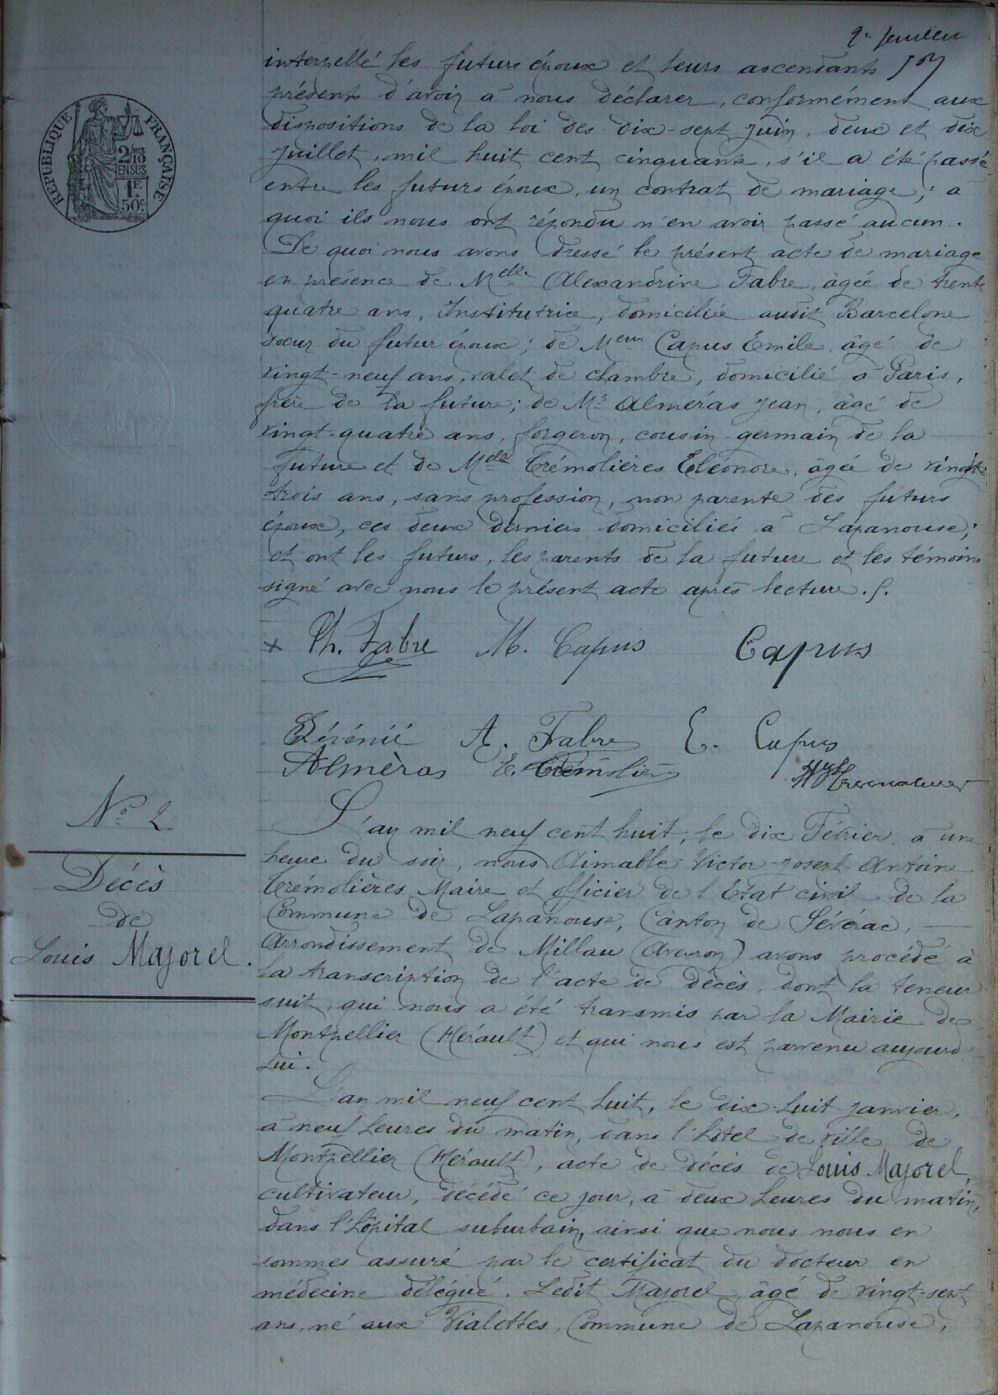 2e feuillet
interpellé les futurs époux et leurs ascendants
présents d'avoir à nous déclarer, conformément aux
dispositions de la loi des dix-sept juin, deux et dix
juillet, mil huit cent cinquante, s'il a été passé
entre les futurs époux, un contrat de mariage; à
quoi ils nous ont répondu n'en avoir passé aucun.
De quoi nous avons dressé le présent acte de mariage
en présence de Melle Alexandrine Fabre, âgée de trente
quatre ans, Institutrice, domiciliée audit Barcelone
soeur du futur époux; de Meur Capus Emile, âgé de
vingt-neuf ans, valet de chambre, domicilié à Paris,
frère de la future; de Mr Alméras Jean, âgé de
vingt-quatre ans, forgeron, cousin germain de la
future et de Melle Trémolières Eléonore, âgée de vingt
trois ans, sans profession, non parente des futurs
époux, ces deux derniers domiciliés à Lapanouse;
et ont les futurs, les parents de la future et les témoins
signé avec nous le présent acte après lecture.
x Ph. Fabre M. Capus Capus
A. Fabre E. Capus
Almèras E. Trémolières
RÉPUBLIQUE FRANÇAISE
2/10 EN SUS
1F 50c
No 2
Décès
de
Louis Majorel.
L'an mil neuf cent huit, le dix Février à une
heure du soir, nous Aimable Victor-Joseph Antoin
Trémolières Maire et officier de l'Etat civil de la
Commune de Lapanouse, Canton de Sévérac,
Arrondissement de Millau (Aveyron) avons procédé à
la transcription de l'acte de décès, dont la teneur
suit, qui nous a été transmis par la Mairie de
Montpellier (Hérault) et qui nous est parvenu aujourd
hui.
L'an mil neuf cent huit, le dix-huit janvier,
à neuf heures du matin, dans l'hôtel de ville de
Montpellier (Hérault), acte de décès de Louis Majorel,
cultivateur, décédé ce jour, à deux heures du matin,
dans l'hôpital suburbain, ainsi que nous nous en
sommes assuré par le certificat du docteur en
médecine délégué. Ledit Majorel âgé de vingt-sept
ans, né aux Vialettes, Commune de Lapanouse,